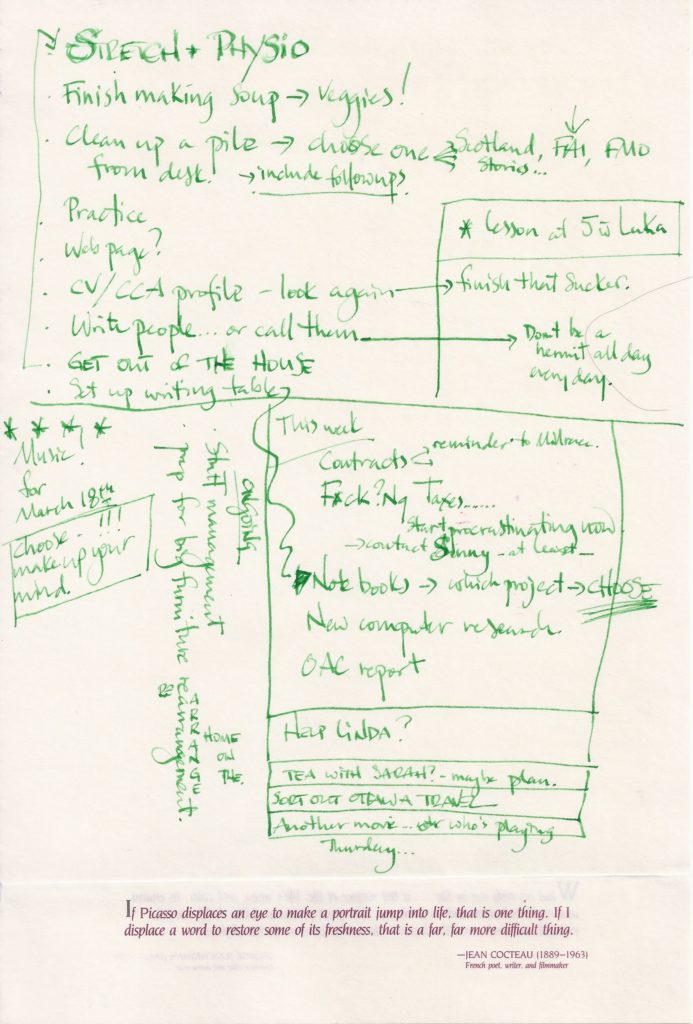 STRETCH + PHYSIO
· Finish making Soup → Veggies!
· Clean up a pile → choose one Scotland, FAI, FMO
from desk. → include followups Stories...
· Practice
· Web page?
* lesson at 5 w Luka
· CV/CCA profile – look again → finish that sucker.
· Write people... or call them → Don't be a
hermit all day
every day.
· GET OUT OF THE HOUSE
· Set up writing table
* * * *
Music!
for
March 18th
choose - !!!
make up your
mind.
ONGOING
· Stuff management
· prep for big furniture rearrangement.
RE
ARRANGE
HOME
ON
THE
This week
Contracts reminder to
F*ck?Ng Taxes......
Start procrastinating now
→ contact Sunny – at least –
Note books → which project → CHOOSE
New computer research.
OAC report
HELP LINDA?
TEA WITH SARAH? – maybe plan.
SORT OUT OTTAWA TRAVEL
Another movie... or who's playing
Thursday...
If Picasso displaces an eye to make a portrait jump into life, that is one thing. If I
displace a word to restore some of its freshness, that is a far, far more difficult thing.
—JEAN COCTEAU (1889–1963)
French poet, writer, and filmmaker